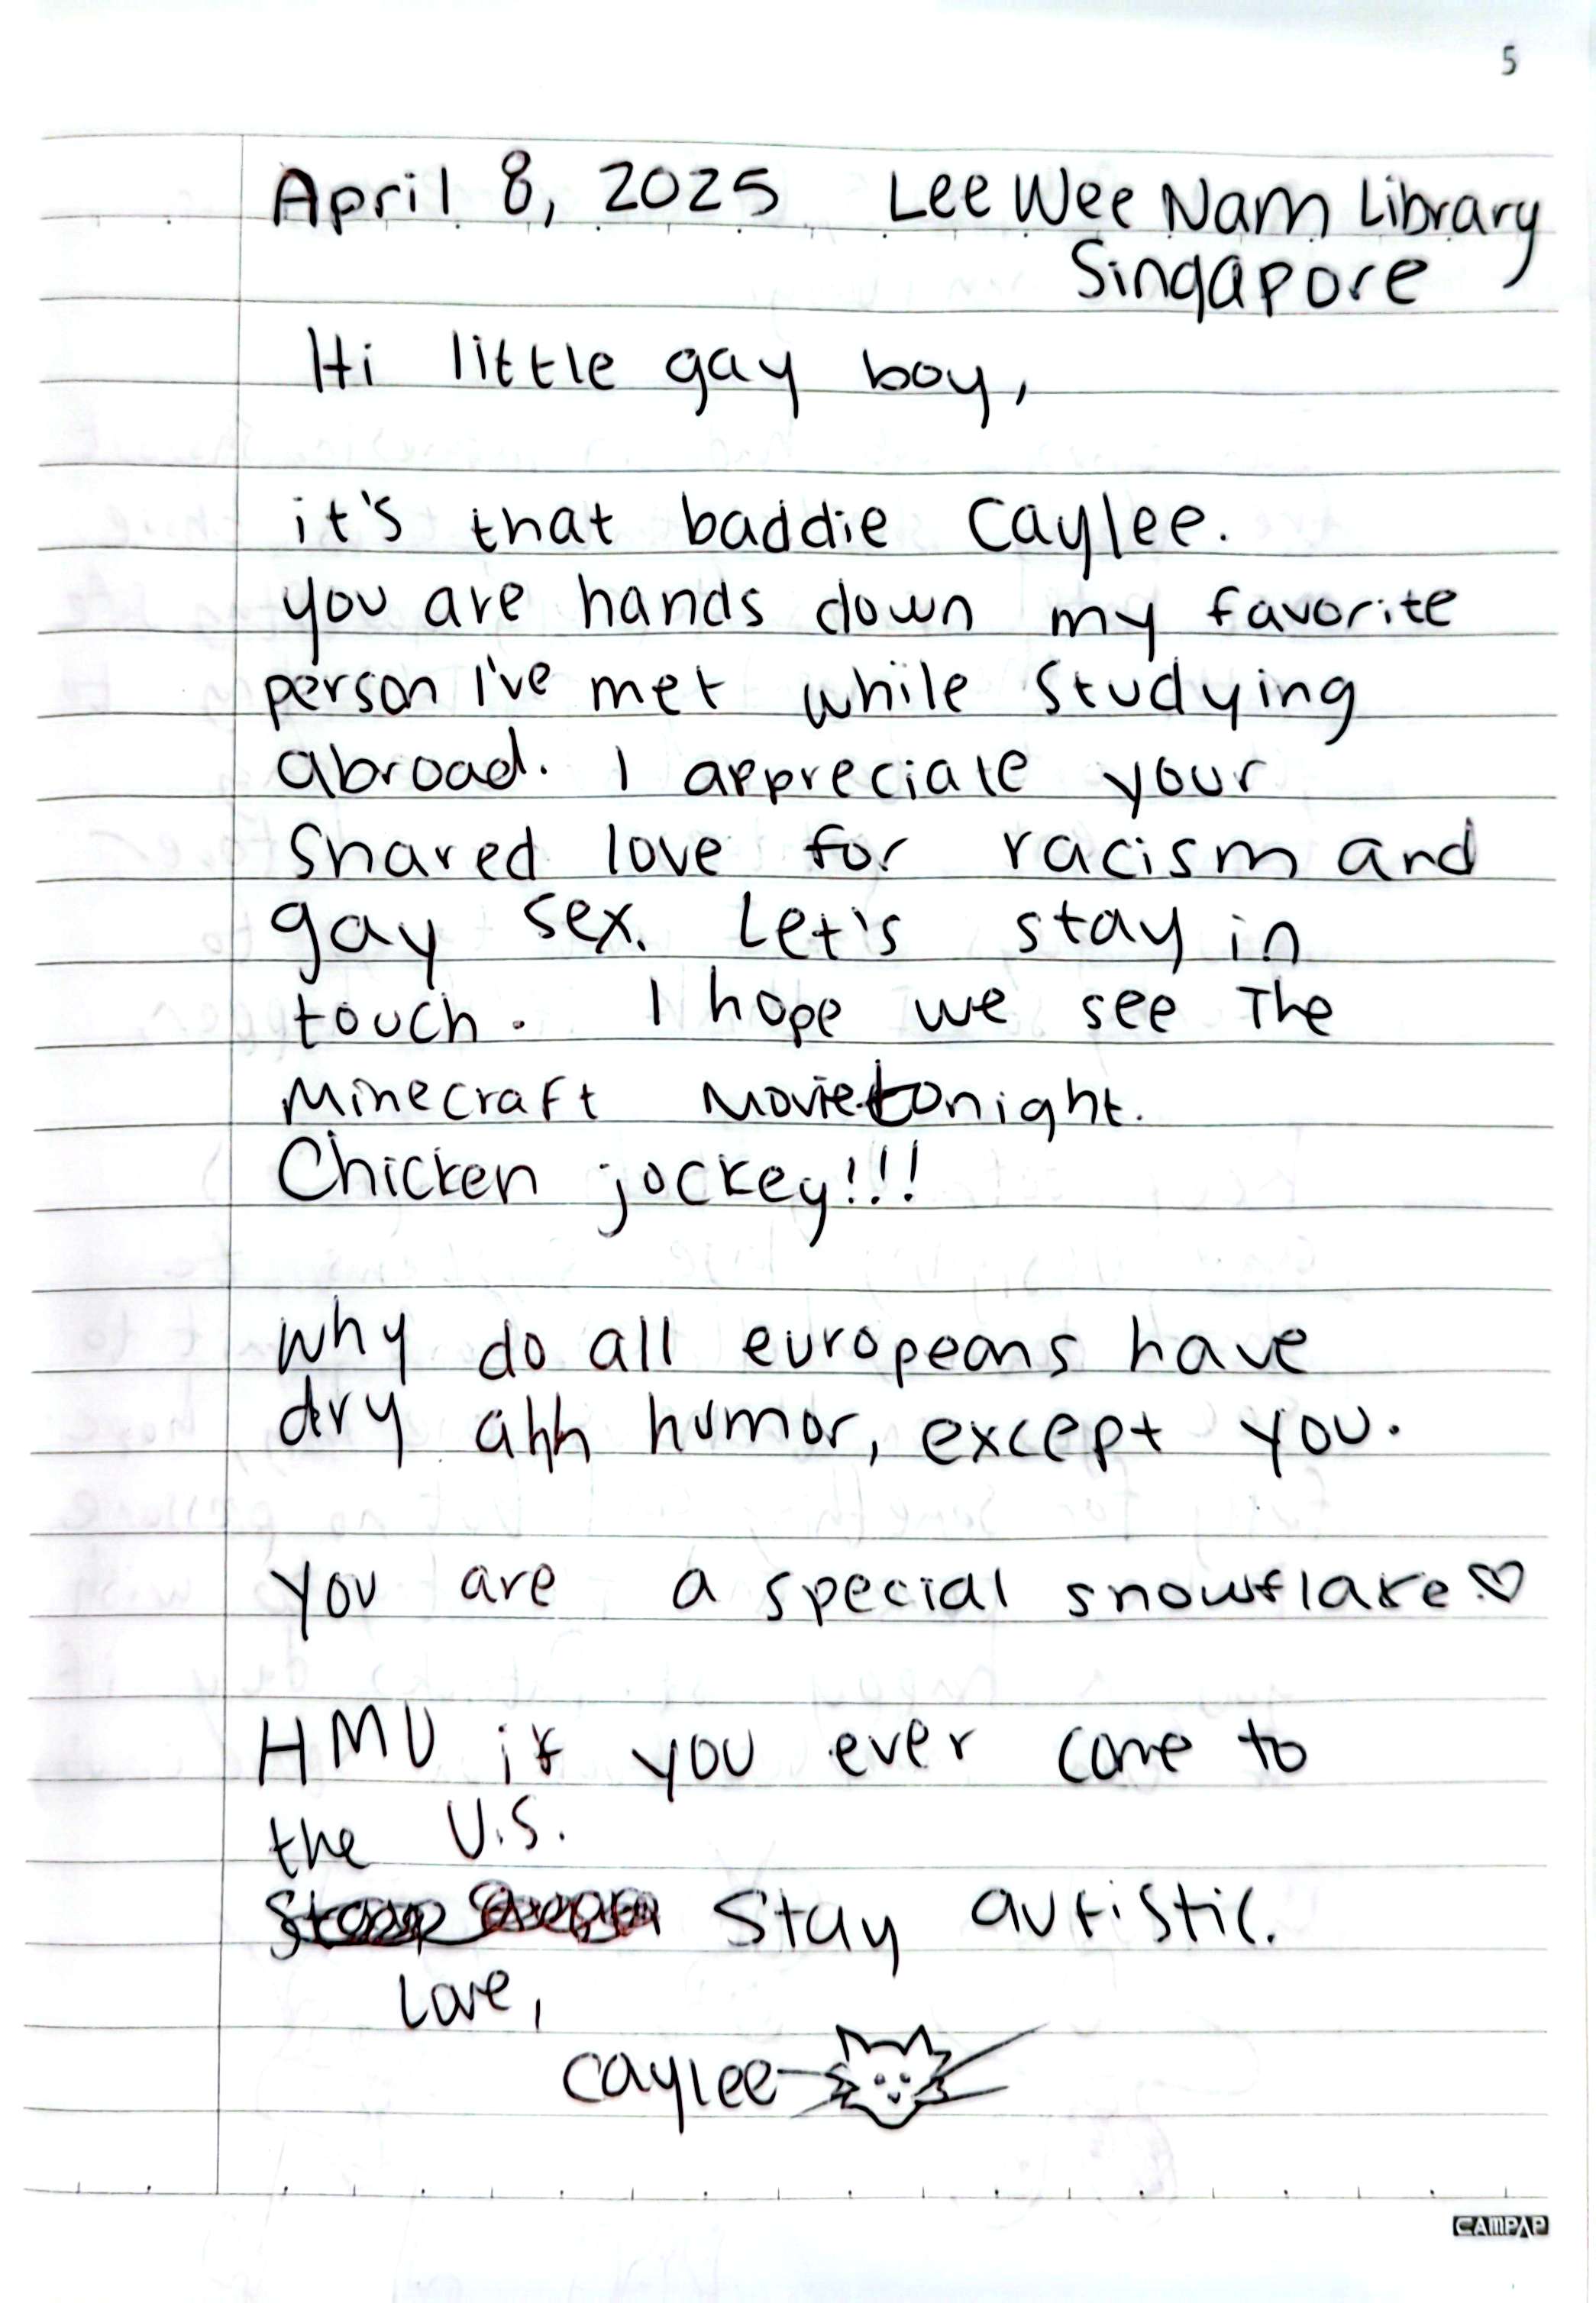 5
April 8, 2025 Lee Wee Nam Library
Singapore
Hi little gay boy,
it's that baddie Caylee.
you are hands down my favorite
person I've met while studying
abroad. I appreciate your
shared love for racism and
gay sex. Let's stay in
touch. I hope we see The
Minecraft Movie tonight.
Chicken jockey!!!
why do all europeans have
dry ahh humor, except you.
you are a special snowflake♡
HMU if you ever come to
the U.S.
Stay autistic.
Love,
caylee
CAMPAP